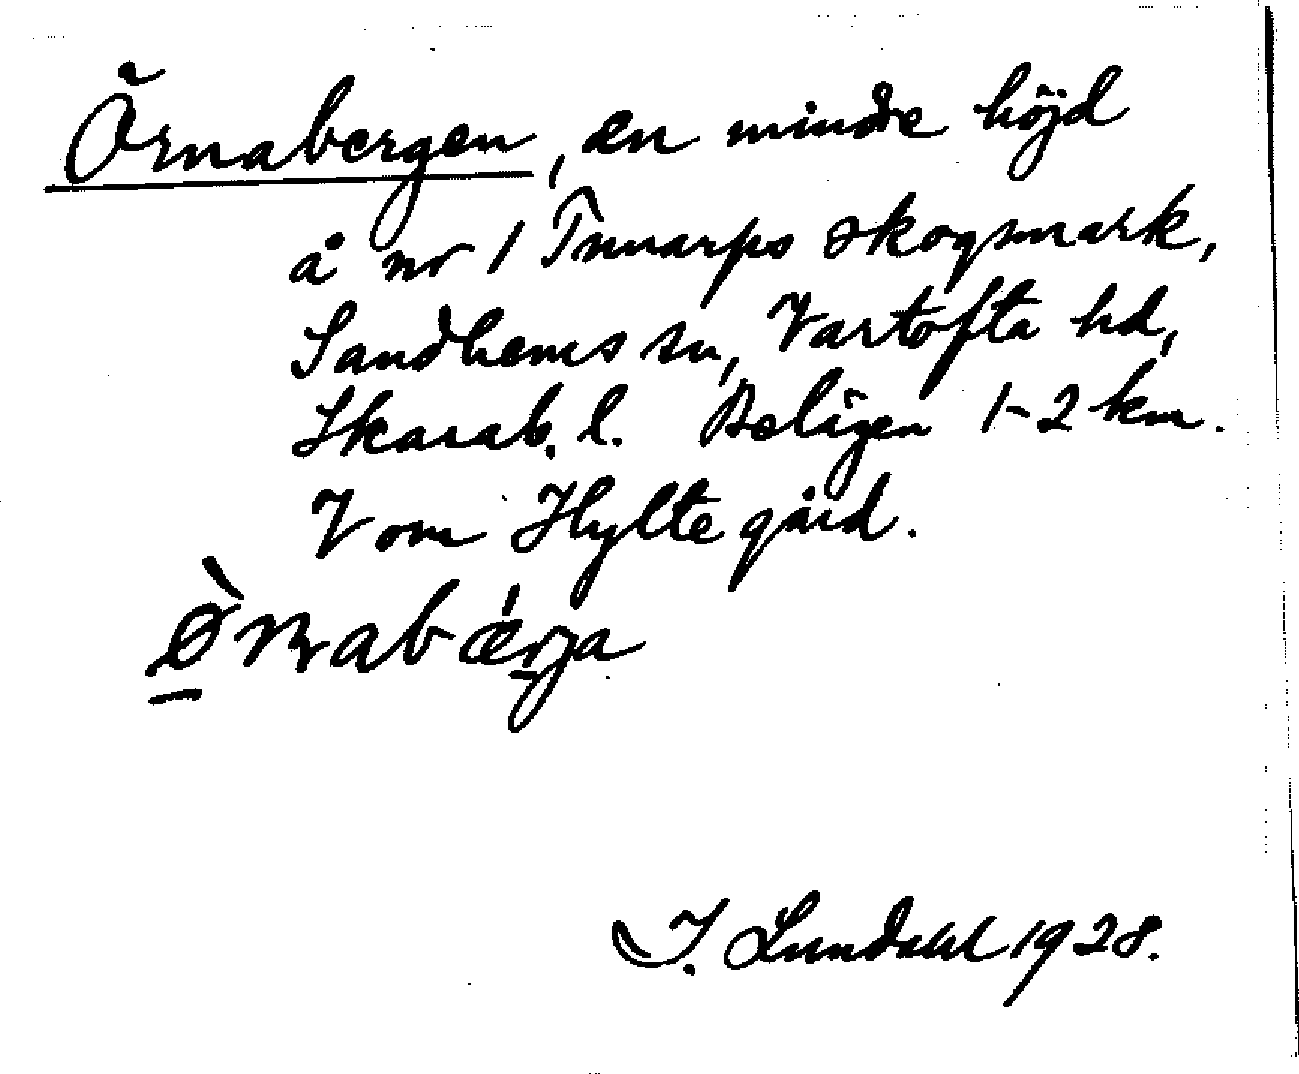 Örnabergen, en mindre höjd
å nr 1 Tunarps skogsmark,
Sandhems sn, Vartofta hd,
Skarab. l. Belägen 1-2 km.
V om Hyltegård.
Ø̀rnabærja
I. Lundahl 1928.